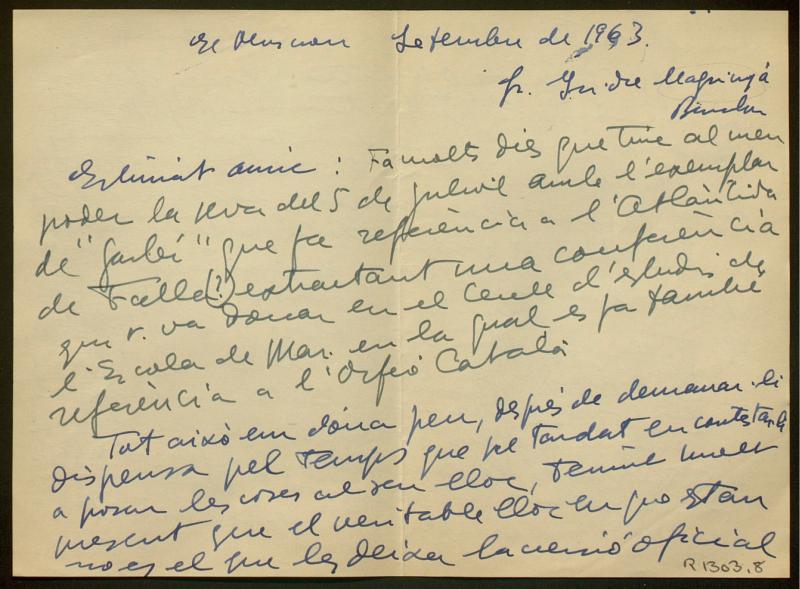 El Muscon Setembre de 1963.
Sr. Isidre Magrinyà
Estimat amic: Fa molts dies que tinc al meu
poder la seva del 5 de juliol amb l'exemplar
de "Garbí" que fa referència a l'Atlàntida
de Falla (?) extractant una conferència
que v. va donar en el Centre d'estudis de
l'Escola de Mar en la qual es fa també
referència a l'Orfeó Català
Tot això em dóna peu, després de demanar-li
dispensa pel temps que he tardat en contestar-la
a posar les coses al seu lloc, tenint molt
present que el veritable lloc en que estan
no es el que les deixa la versió oficial
R 1303.8